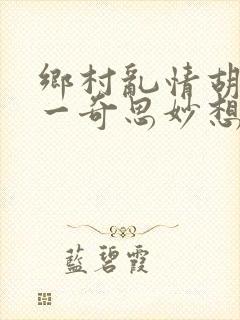 鄉村亂情胡
一奇思妙想
藍碧霞